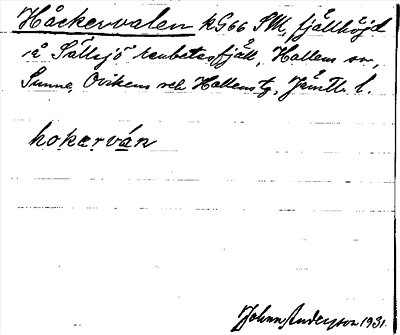 Håckervalen kG66 SM, fjällhöjd
i å Sällsjö renbetesfjäll, Hallens sn,
Sunne, Ovikens och Hallens tg, Jämtl. l.
hokərván
John Andersson 1931.